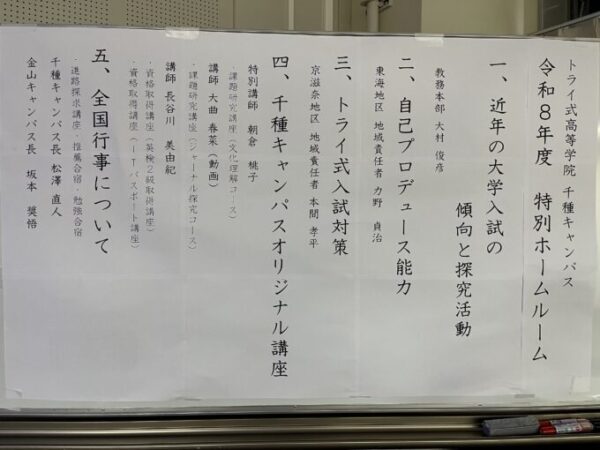 トライ式高等学院 千種キャンパス
令和８年度 特別ホームルーム
一、近年の大学入試の
傾向と探究活動
教務本部 大村 俊彦
二、自己プロデュース能力
東海地区 地域責任者 力野 貞治
三、トライ式入試対策
京滋奈地区 地域責任者 本間 孝平
四、千種キャンパスオリジナル講座
特別講師 朝倉 桃子
・課題研究講座（文化理解コース）
講師 大曲 春菜（動画）
・課題研究講座（ジャーナル探究コース）
講師 長谷川 美由紀
・資格取得講座（英検２級取得講座）
・資格取得講座（ＩＴパスポート講座）
五、全国行事について
・進路探求講座・推薦合宿・勉強合宿
千種キャンパス長 松澤 直人
金山キャンパス長 坂本 奨悟